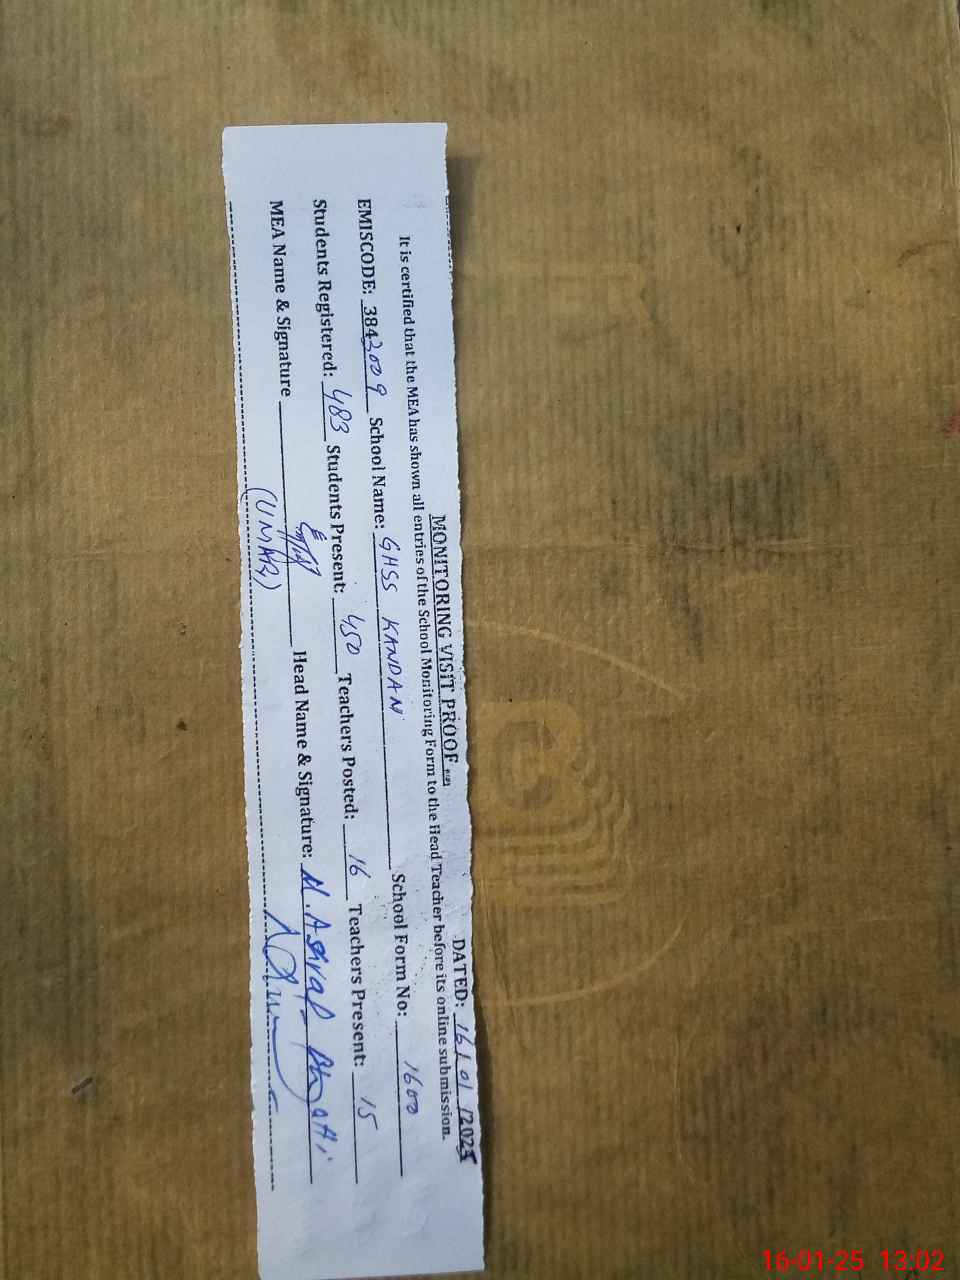 MONITORING VISIT PROOF
DATED: 16/01/2025
It is certified that the MEA has shown all entries of the School Monitoring Form to the Head Teacher before its online submission.
EMISCODE: 38432009 School Name: GHSS KANDAN School Form No: 1600
Students Registered: 483 Students Present: 450 Teachers Posted: 16 Teachers Present: 15
MEA Name & Signature Head Name & Signature: M. Ashraf Bhatti
(UMAR)
16-01-25 13:02